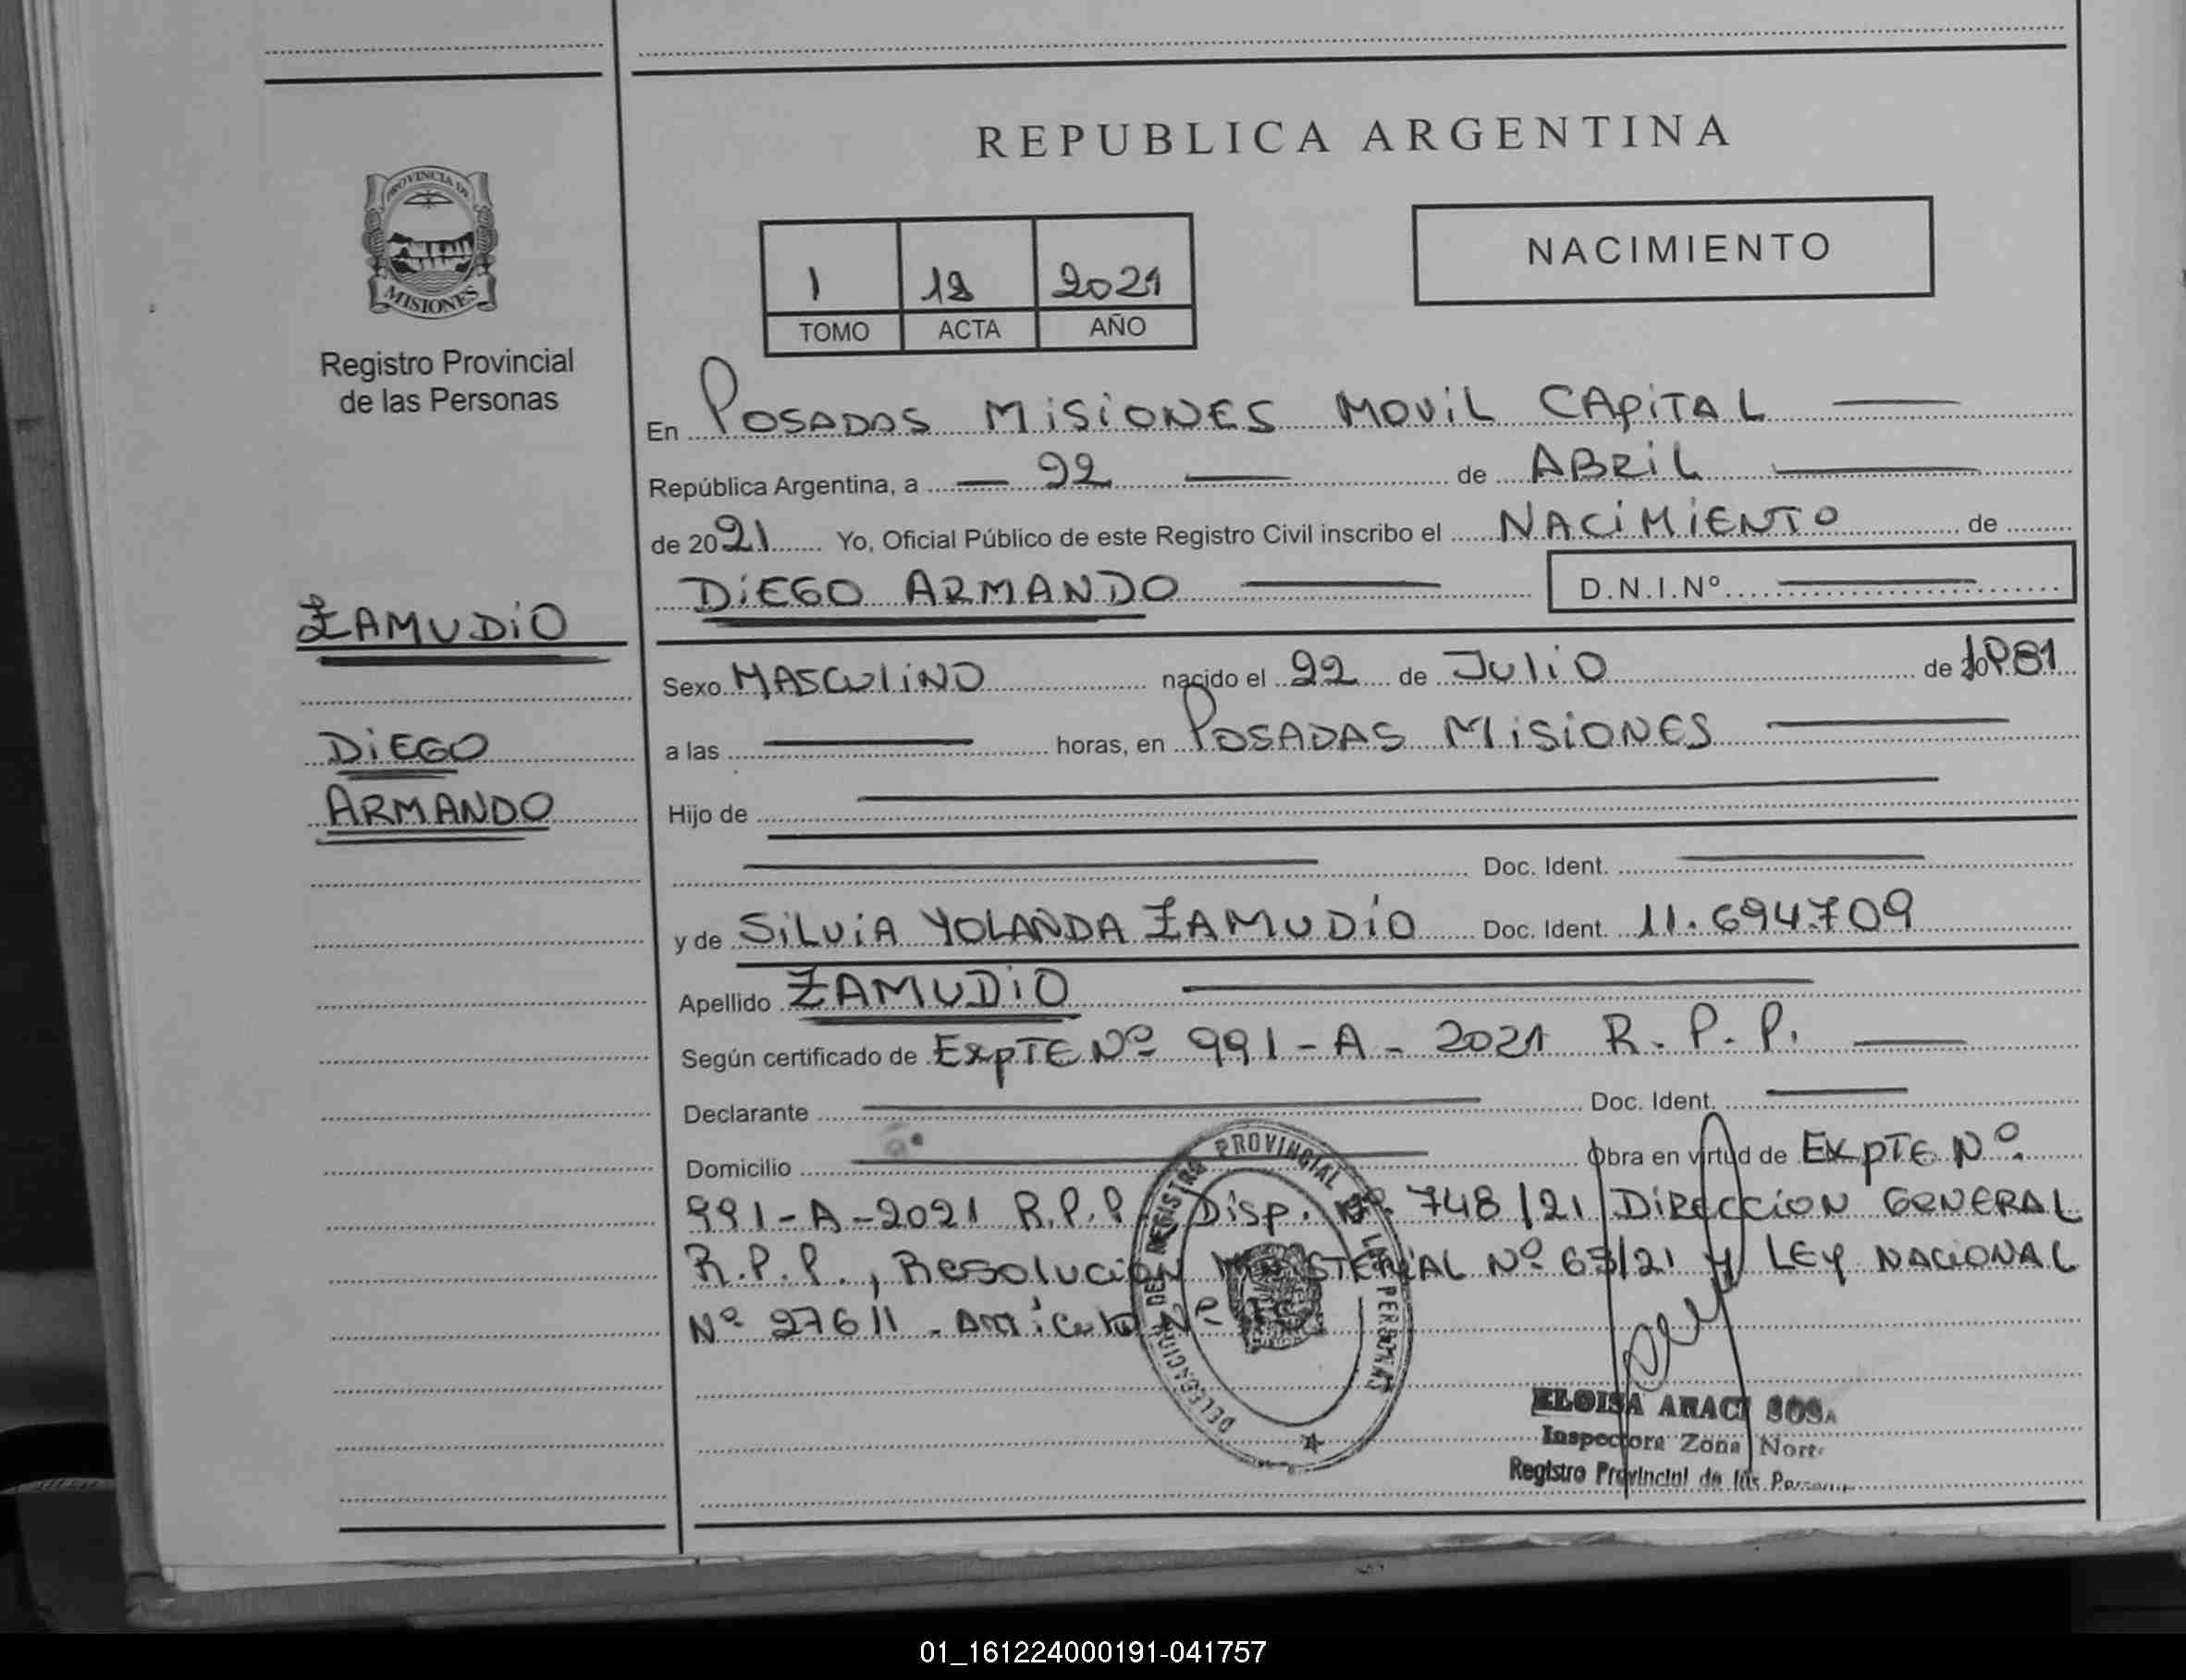 REPUBLICA ARGENTINA
PROVINCIA DE
MISIONES
Registro Provincial
de las Personas
ZAMUDIO
DIEGO
ARMANDO
1 18 2021
TOMO ACTA AÑO
NACIMIENTO
En POSADAS MISIONES MOVIL CAPITAL
República Argentina, a 22 de ABRIL
de 2021 Yo, Oficial Público de este Registro Civil inscribo el NACIMIENTO de
DIEGO ARMANDO D.N.I.Nº
Sexo MASCULINO nacido el 22 de JULIO de 1981
a las horas, en POSADAS MISIONES
Hijo de
Doc. Ident.
y de SILVIA YOLANDA ZAMUDIO Doc. Ident. 11.694.709
Apellido ZAMUDIO
Según certificado de EXPTE Nº 991-A-2021 R.P.P.
Declarante Doc. Ident.
Domicilio Obra en virtud de EXPTE Nº
991-A-2021 R.P.P. Disp. Nº 748/21 DIRECCION GENERAL
R.P.P., RESOLUCION MINISTERIAL Nº /21 Y LEY NACIONAL
Nº 27611 - Articulo Nº
DELEGACION DEL REGISTRO PROVINCIAL DE LAS PERSONAS
ELOISA ARACI SOSA
Inspectora Zona Norte
Registro Provincial de las Personas
01_161224000191-041757